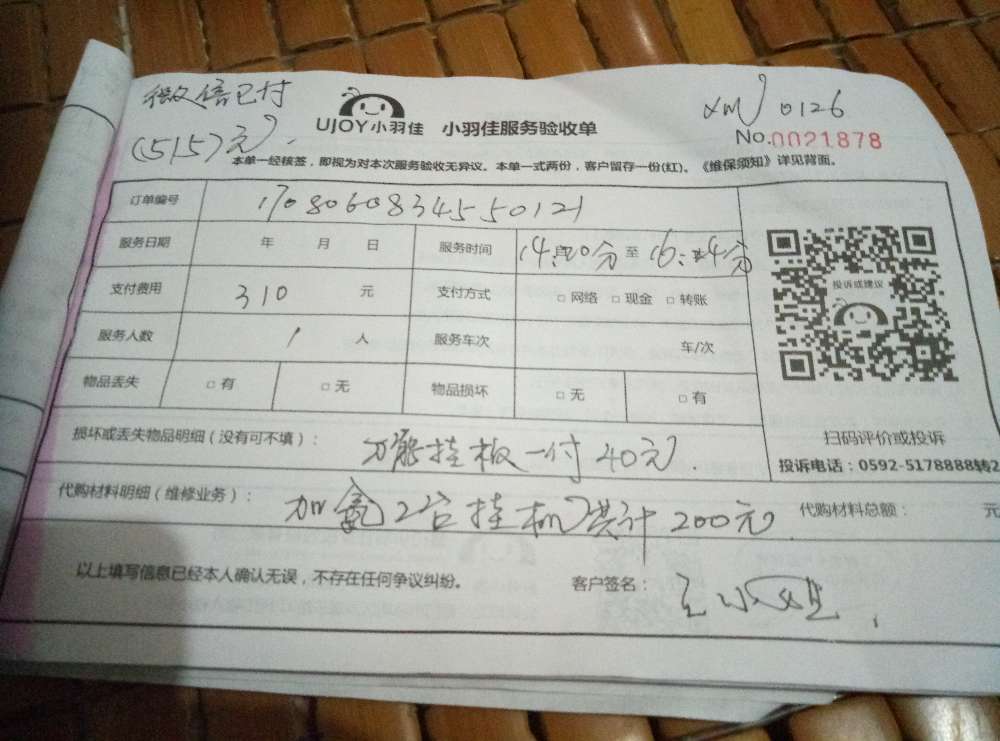 微信已付
(515)元.
UJOY小羽佳 小羽佳服务验收单
XM 0126
No.0021878
本单一经核签，即视为对本次服务验收无异议。本单一式两份，客户留存一份(红)。《维保须知》详见背面。
订单编号 17080608345550121
服务日期 年 月 日 服务时间 14: 分 至 16: 分
支付费用 310 元 支付方式 □ 网络 □ 现金 □ 转账
服务人数 1 人 服务车次 车/次
物品丢失 □ 有 □ 无 物品损坏 □ 无 □ 有
投诉或建议
扫码评价或投诉
投诉电话：0592-5178888转2
损坏或丢失物品明细（没有可不填）： 万能挂板一付 40元.
代购材料明细（维修业务）： 加氟2台挂机共计200元. 代购材料总额： 元
以上填写信息已经本人确认无误，不存在任何争议纠纷。 客户签名： 王小姐